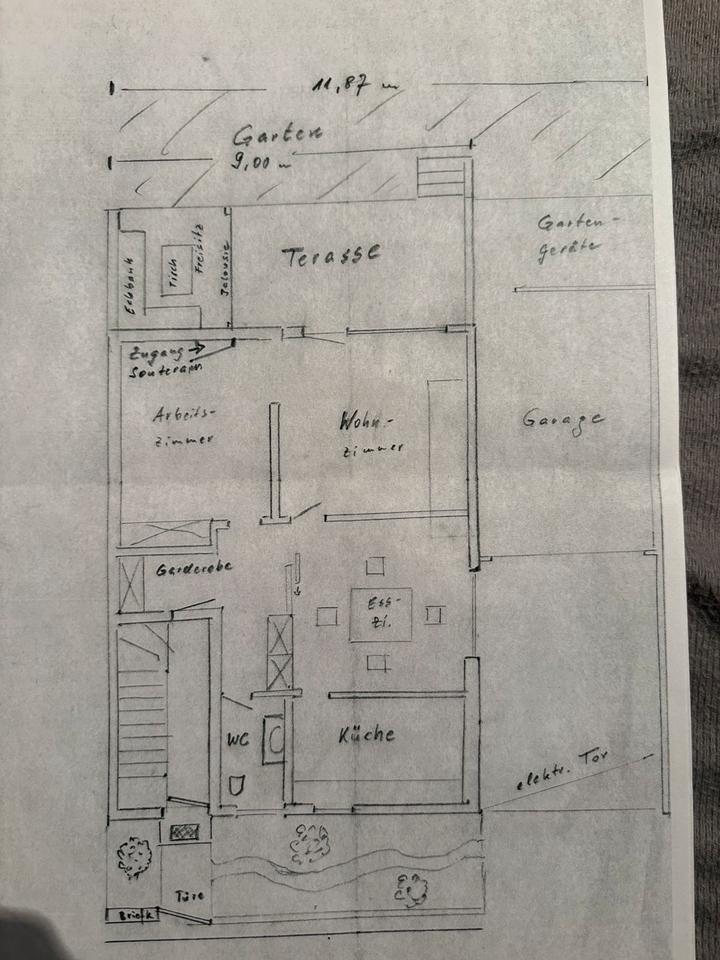 11,87 m
Garten
9,00 m
Garten-
geräte
Terasse
Eckbank
Tisch
Freisitz
Jalousie
Zugang
Souterain
Arbeits-
zimmer
Wohn-
zimmer
Garage
Garderobe
Ess-
Zi.
WC
Küche
elektr. Tor
Türe
Briefk